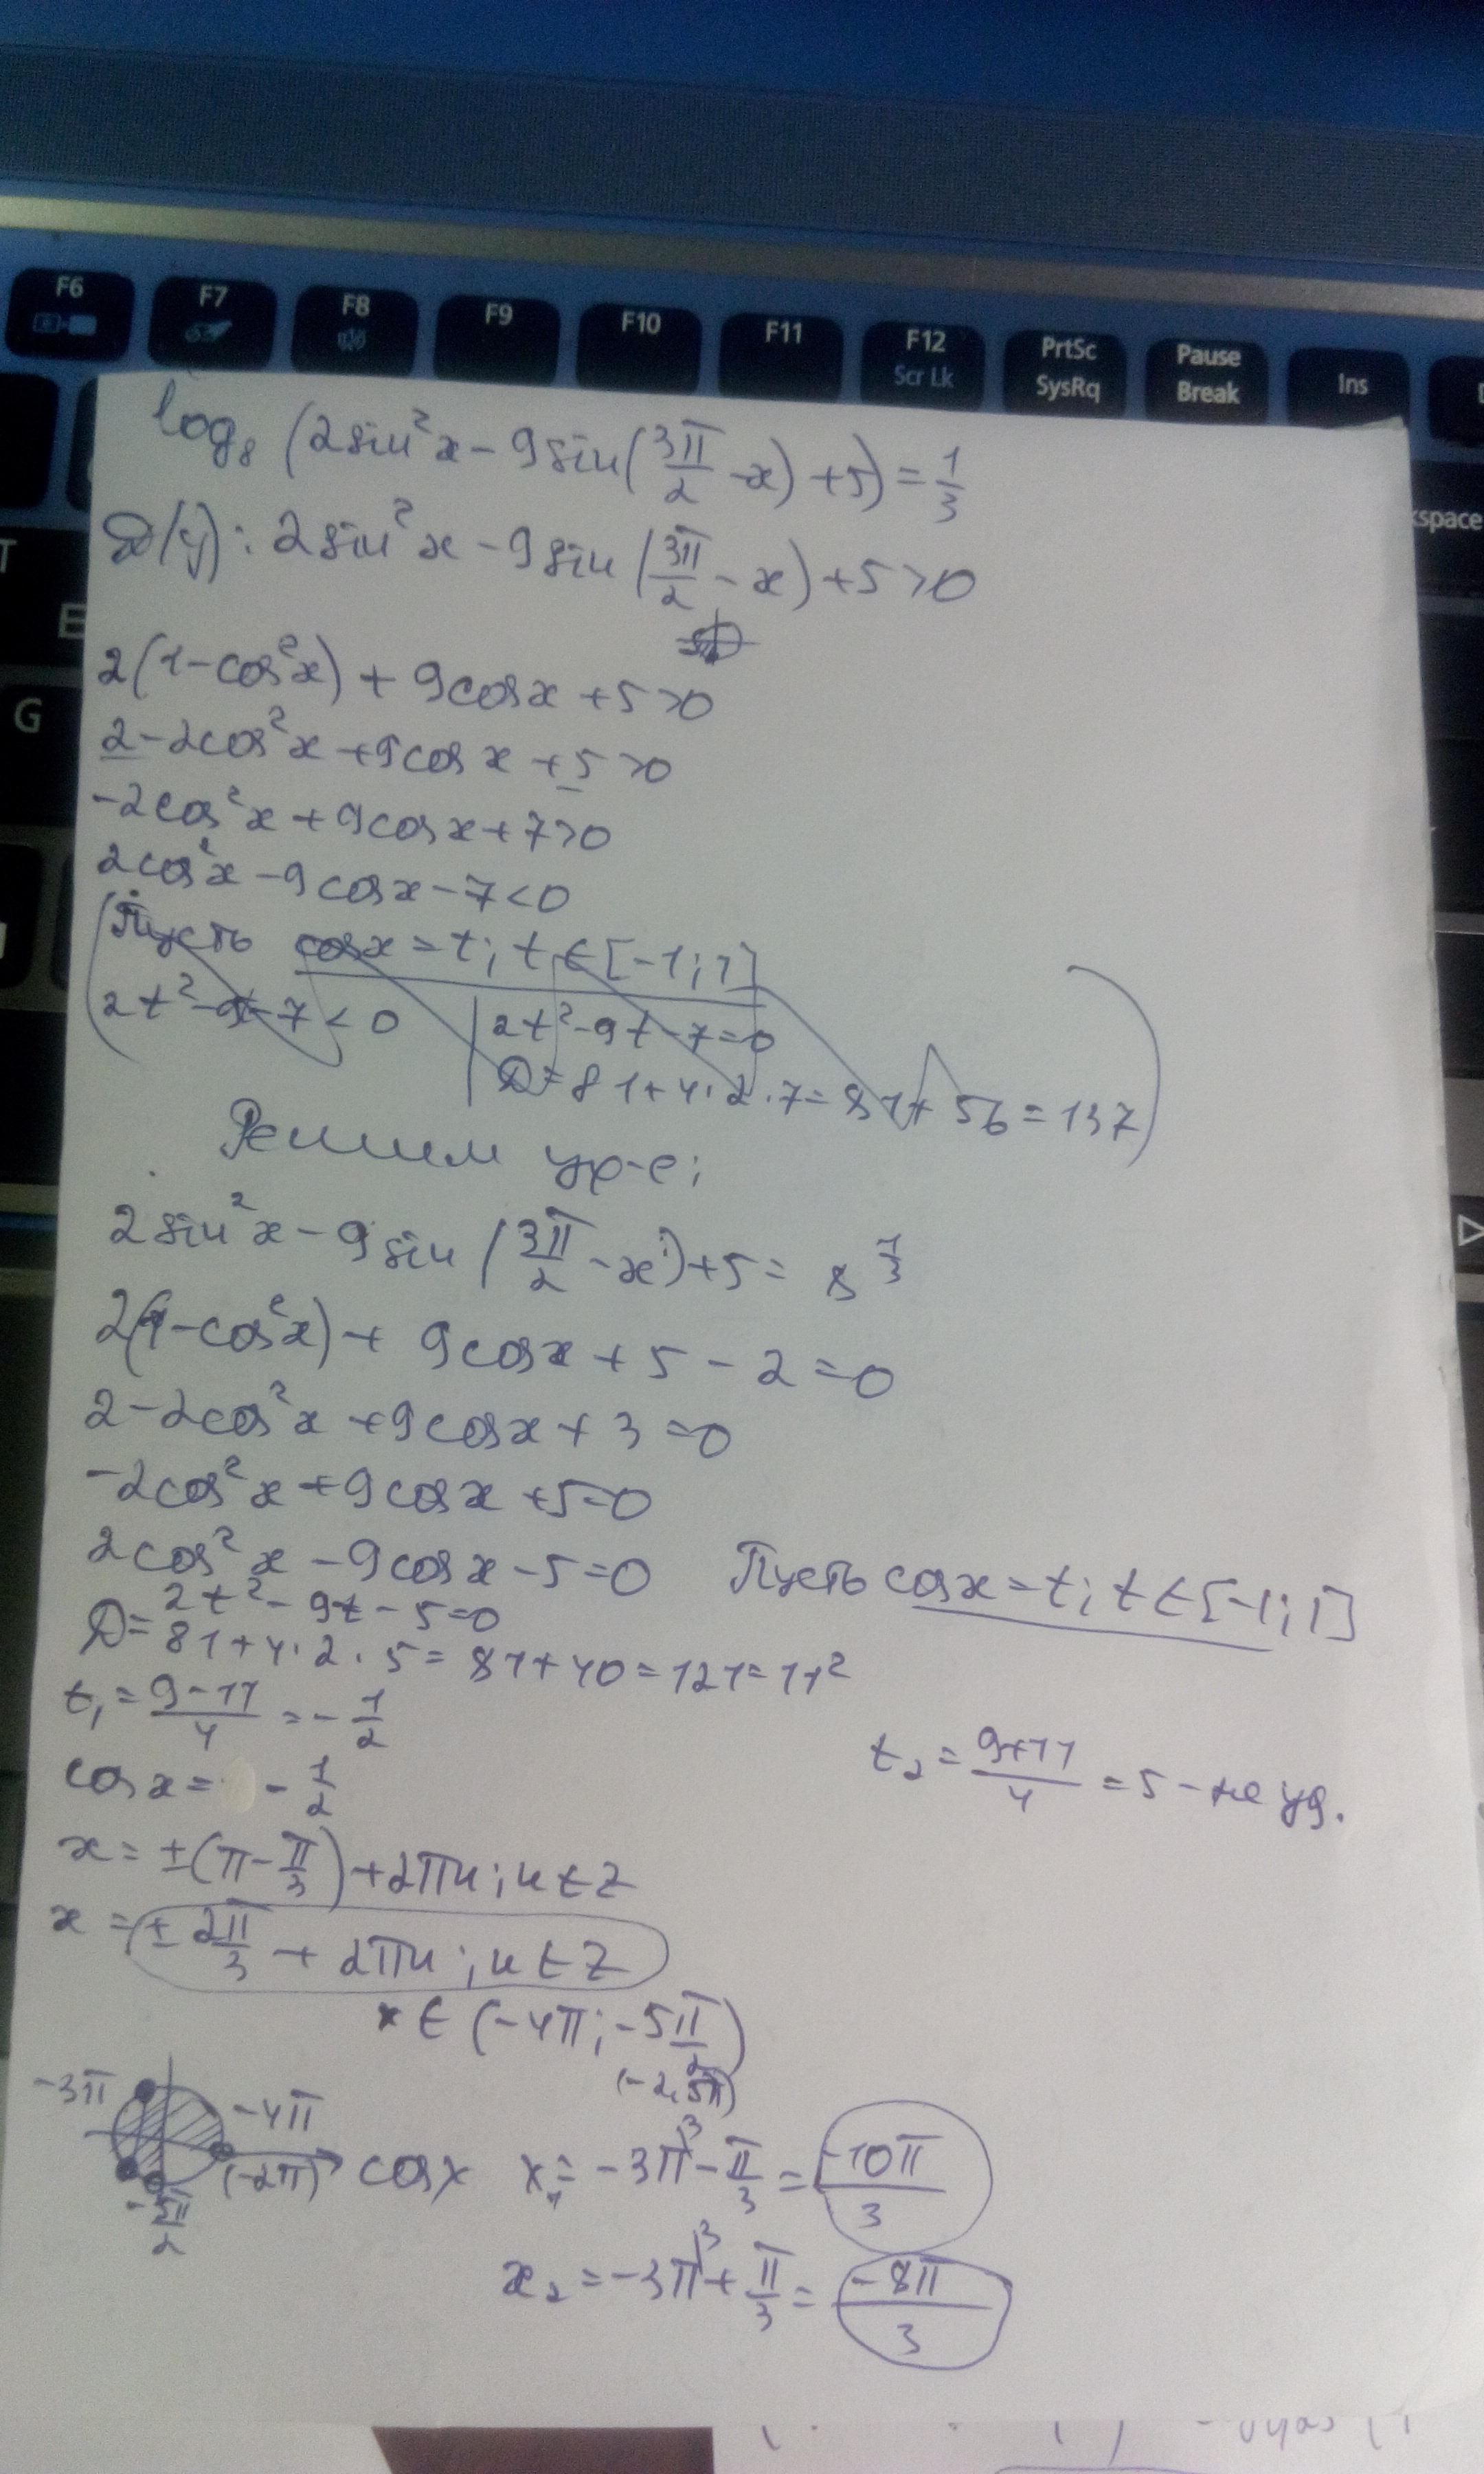 F6 F7 F8 F9 F10 F11 F12 Scr Lk PrtSc SysRq Pause Break Ins
kspace
T
E
G
log₈ (2sin²x - 9sin(3π/2 - x) + 5) = 1/3
D(y): 2sin²x - 9sin(3π/2 - x) + 5 > 0
2(1 - cos²x) + 9cosx + 5 > 0
2 - 2cos²x + 9cosx + 5 > 0
-2cos²x + 9cosx + 7 > 0
2cos²x - 9cosx - 7 < 0
(Пусть cosx = t; t ∈ [-1; 1]
2t² - 9t - 7 < 0 | 2t² - 9t - 7 = 0
D = 81 + 4·2·7 = 81 + 56 = 137)
Решим ур-е:
2sin²x - 9sin(3π/2 - x) + 5 = 8^(1/3)
2(1 - cos²x) + 9cosx + 5 - 2 = 0
2 - 2cos²x + 9cosx + 3 = 0
-2cos²x + 9cosx + 5 = 0
2cos²x - 9cosx - 5 = 0 Пусть cosx = t; t ∈ [-1; 1]
2t² - 9t - 5 = 0
D = 81 + 4·2·5 = 81 + 40 = 121 = 11²
t₁ = (9 - 11)/4 = -1/2
t₂ = (9 + 11)/4 = 5 - не уд.
cosx = -1/2
x = ±(π - π/3) + 2πn; n ∈ Z
x = ± 2π/3 + 2πn; n ∈ Z
x ∈ (-4π; -5π/2)
(-2,5π)
-3π
-4π
(-2π) cosx
-5π/2
x₁ = -3π - π/3 = -10π/3
x₂ = -3π + π/3 = -8π/3